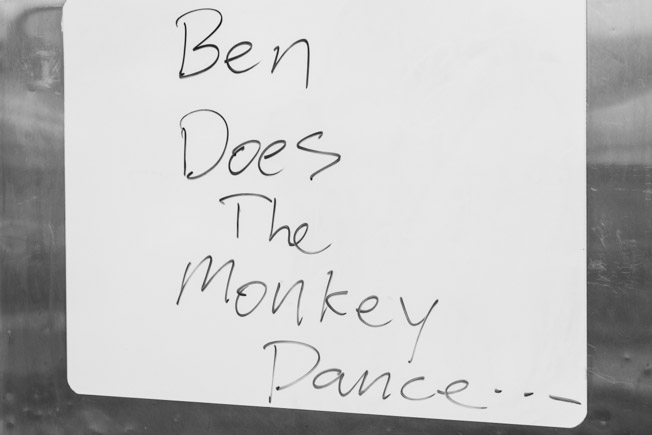 Ben
Does
The
Monkey
Dance...